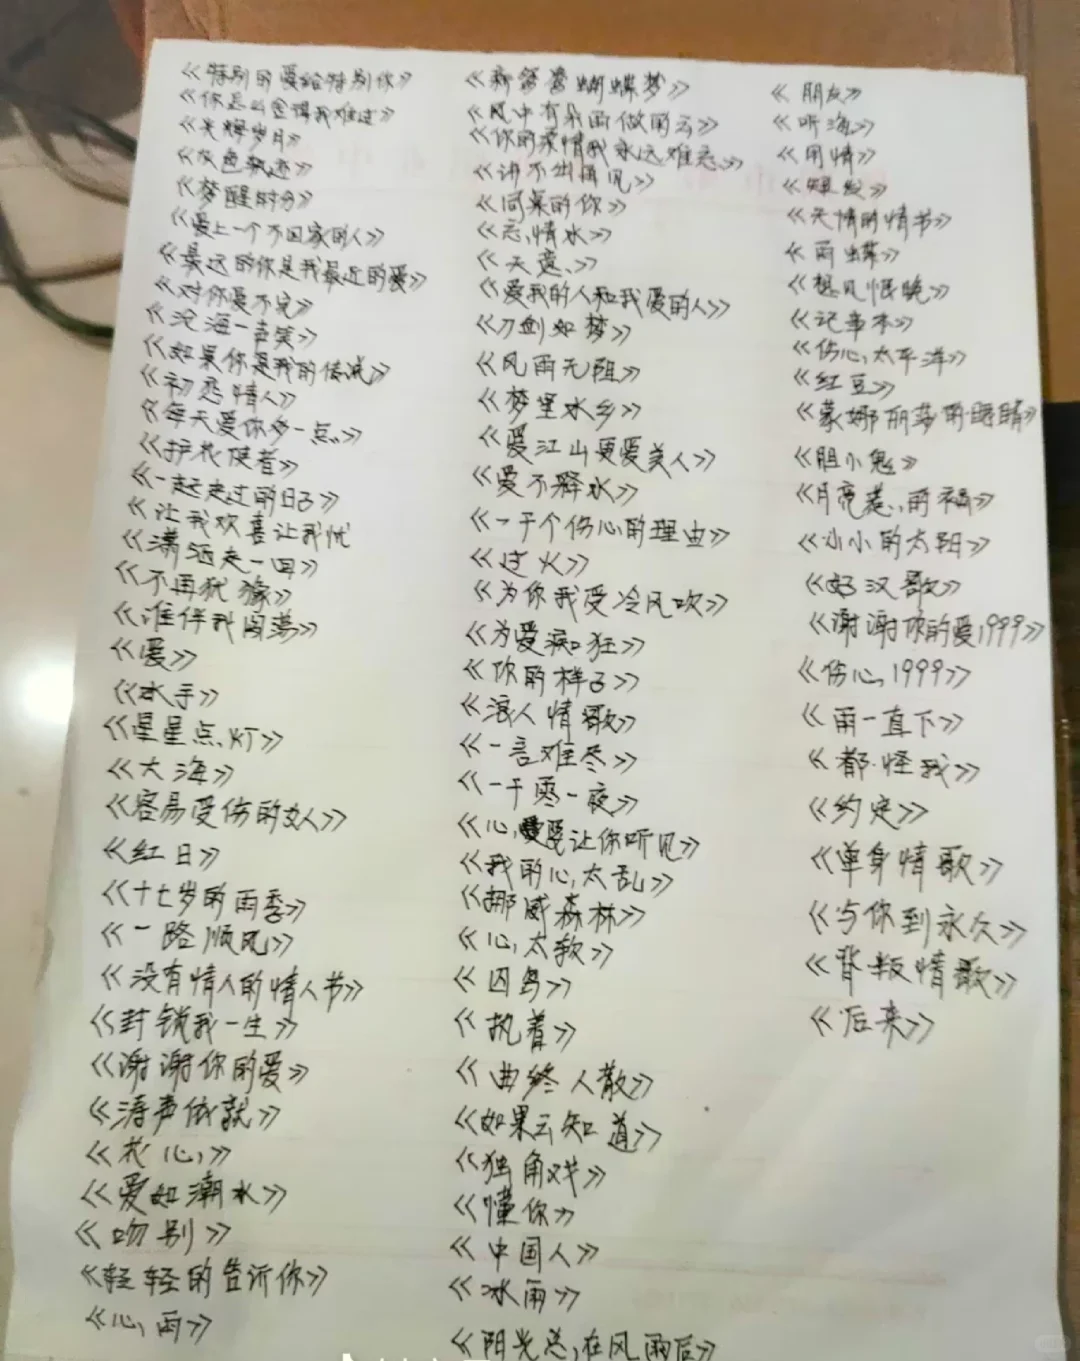 《特别的爱给特别你》
《你怎么舍得我难过》
《光辉岁月》
《灰色轨迹》
《梦醒时分》
《爱上一个不回家的人》
《最远的你是我最近的爱》
《对你爱不完》
《沧海一声笑》
《如果你是我的传说》
《初恋情人》
《每天爱你多一点》
《护花使者》
《一起走过的日子》
《让我欢喜让我忧
《潇洒走一回》
《不再犹豫》
《谁伴我闯荡》
《爱》
《水手》
《星星点灯》
《大海》
《容易受伤的女人》
《红日》
《十七岁的雨季》
《一路顺风》
《没有情人的情人节》
《封锁我一生》
《谢谢你的爱》
《涛声依就》
《花心》
《爱如潮水》
《吻别》
《轻轻的告诉你》
《心雨》
《新鸳鸯蝴蝶梦》
《风中有朵雨做的云》
《你的柔情我永远难忘》
《讲不出再见》
《同桌的你》
《忘情水》
《天意》
《爱我的人和我爱的人》
《刀剑如梦》
《风雨无阻》
《梦里水乡》
《爱江山更爱美人》
《爱不释水》
《一千个伤心的理由》
《过火》
《为你我受冷风吹》
《为爱痴狂》
《你的样子》
《浪人情歌》
《一言难尽》
《一千零一夜》
《心爱让你听见》
《我的心太乱》
《挪威森林》
《心太软》
《囚鸟》
《执着》
《曲终人散》
《如果云知道》
《独角戏》
《懂你》
《中国人》
《冰雨》
《阳光总在风雨后》
《朋友》
《听海》
《用情》
《短发》
《天情的情书》
《雨蝶》
《想见恨晚》
《记事本》
《伤心太平洋》
《红豆》
《蒙娜丽莎的眼睛》
《胆小鬼》
《月亮惹的祸》
《小小的太阳》
《好汉歌》
《谢谢你的爱1999》
《伤心1999》
《雨一直下》
《都怪我》
《约定》
《单身情歌》
《与你到永久》
《背叛情歌》
《后来》